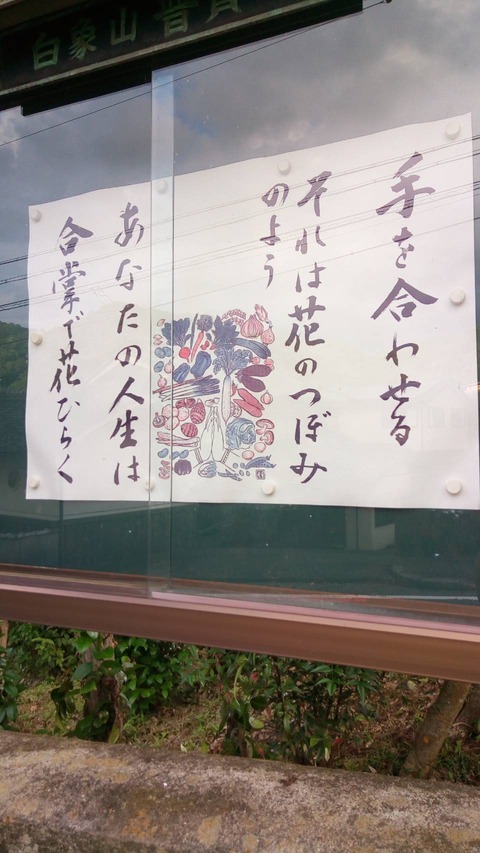 白象山 普賢
手を合わせる
それは花のつぼみ
のよう
あなたの人生は
合掌で花ひらく